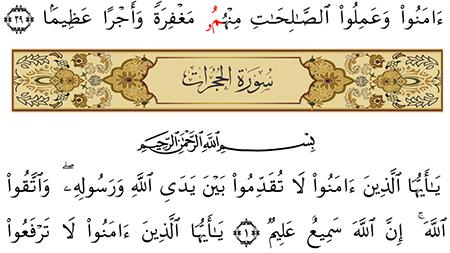 ءَامَنُوا۟ وَعَمِلُوا۟ ٱلصَّـٰلِحَـٰتِ مِنْهُمُۥ مَغْفِرَةً وَأَجْرًا عَظِيمًۢا ﴿٢٩﴾
سُورَةُ الحُجُرَاتِ
بِسْمِ ٱللَّهِ ٱلرَّحْمَـٰنِ ٱلرَّحِيمِ
يَـٰٓأَيُّهَا ٱلَّذِينَ ءَامَنُوا۟ لَا تُقَدِّمُوا۟ بَيْنَ يَدَىِ ٱللَّهِ وَرَسُولِهِۦ ۖ وَٱتَّقُوا۟
ٱللَّهَ ۚ إِنَّ ٱللَّهَ سَمِيعٌ عَلِيمٌ ﴿١﴾ يَـٰٓأَيُّهَا ٱلَّذِينَ ءَامَنُوا۟ لَا تَرْفَعُوٓا۟